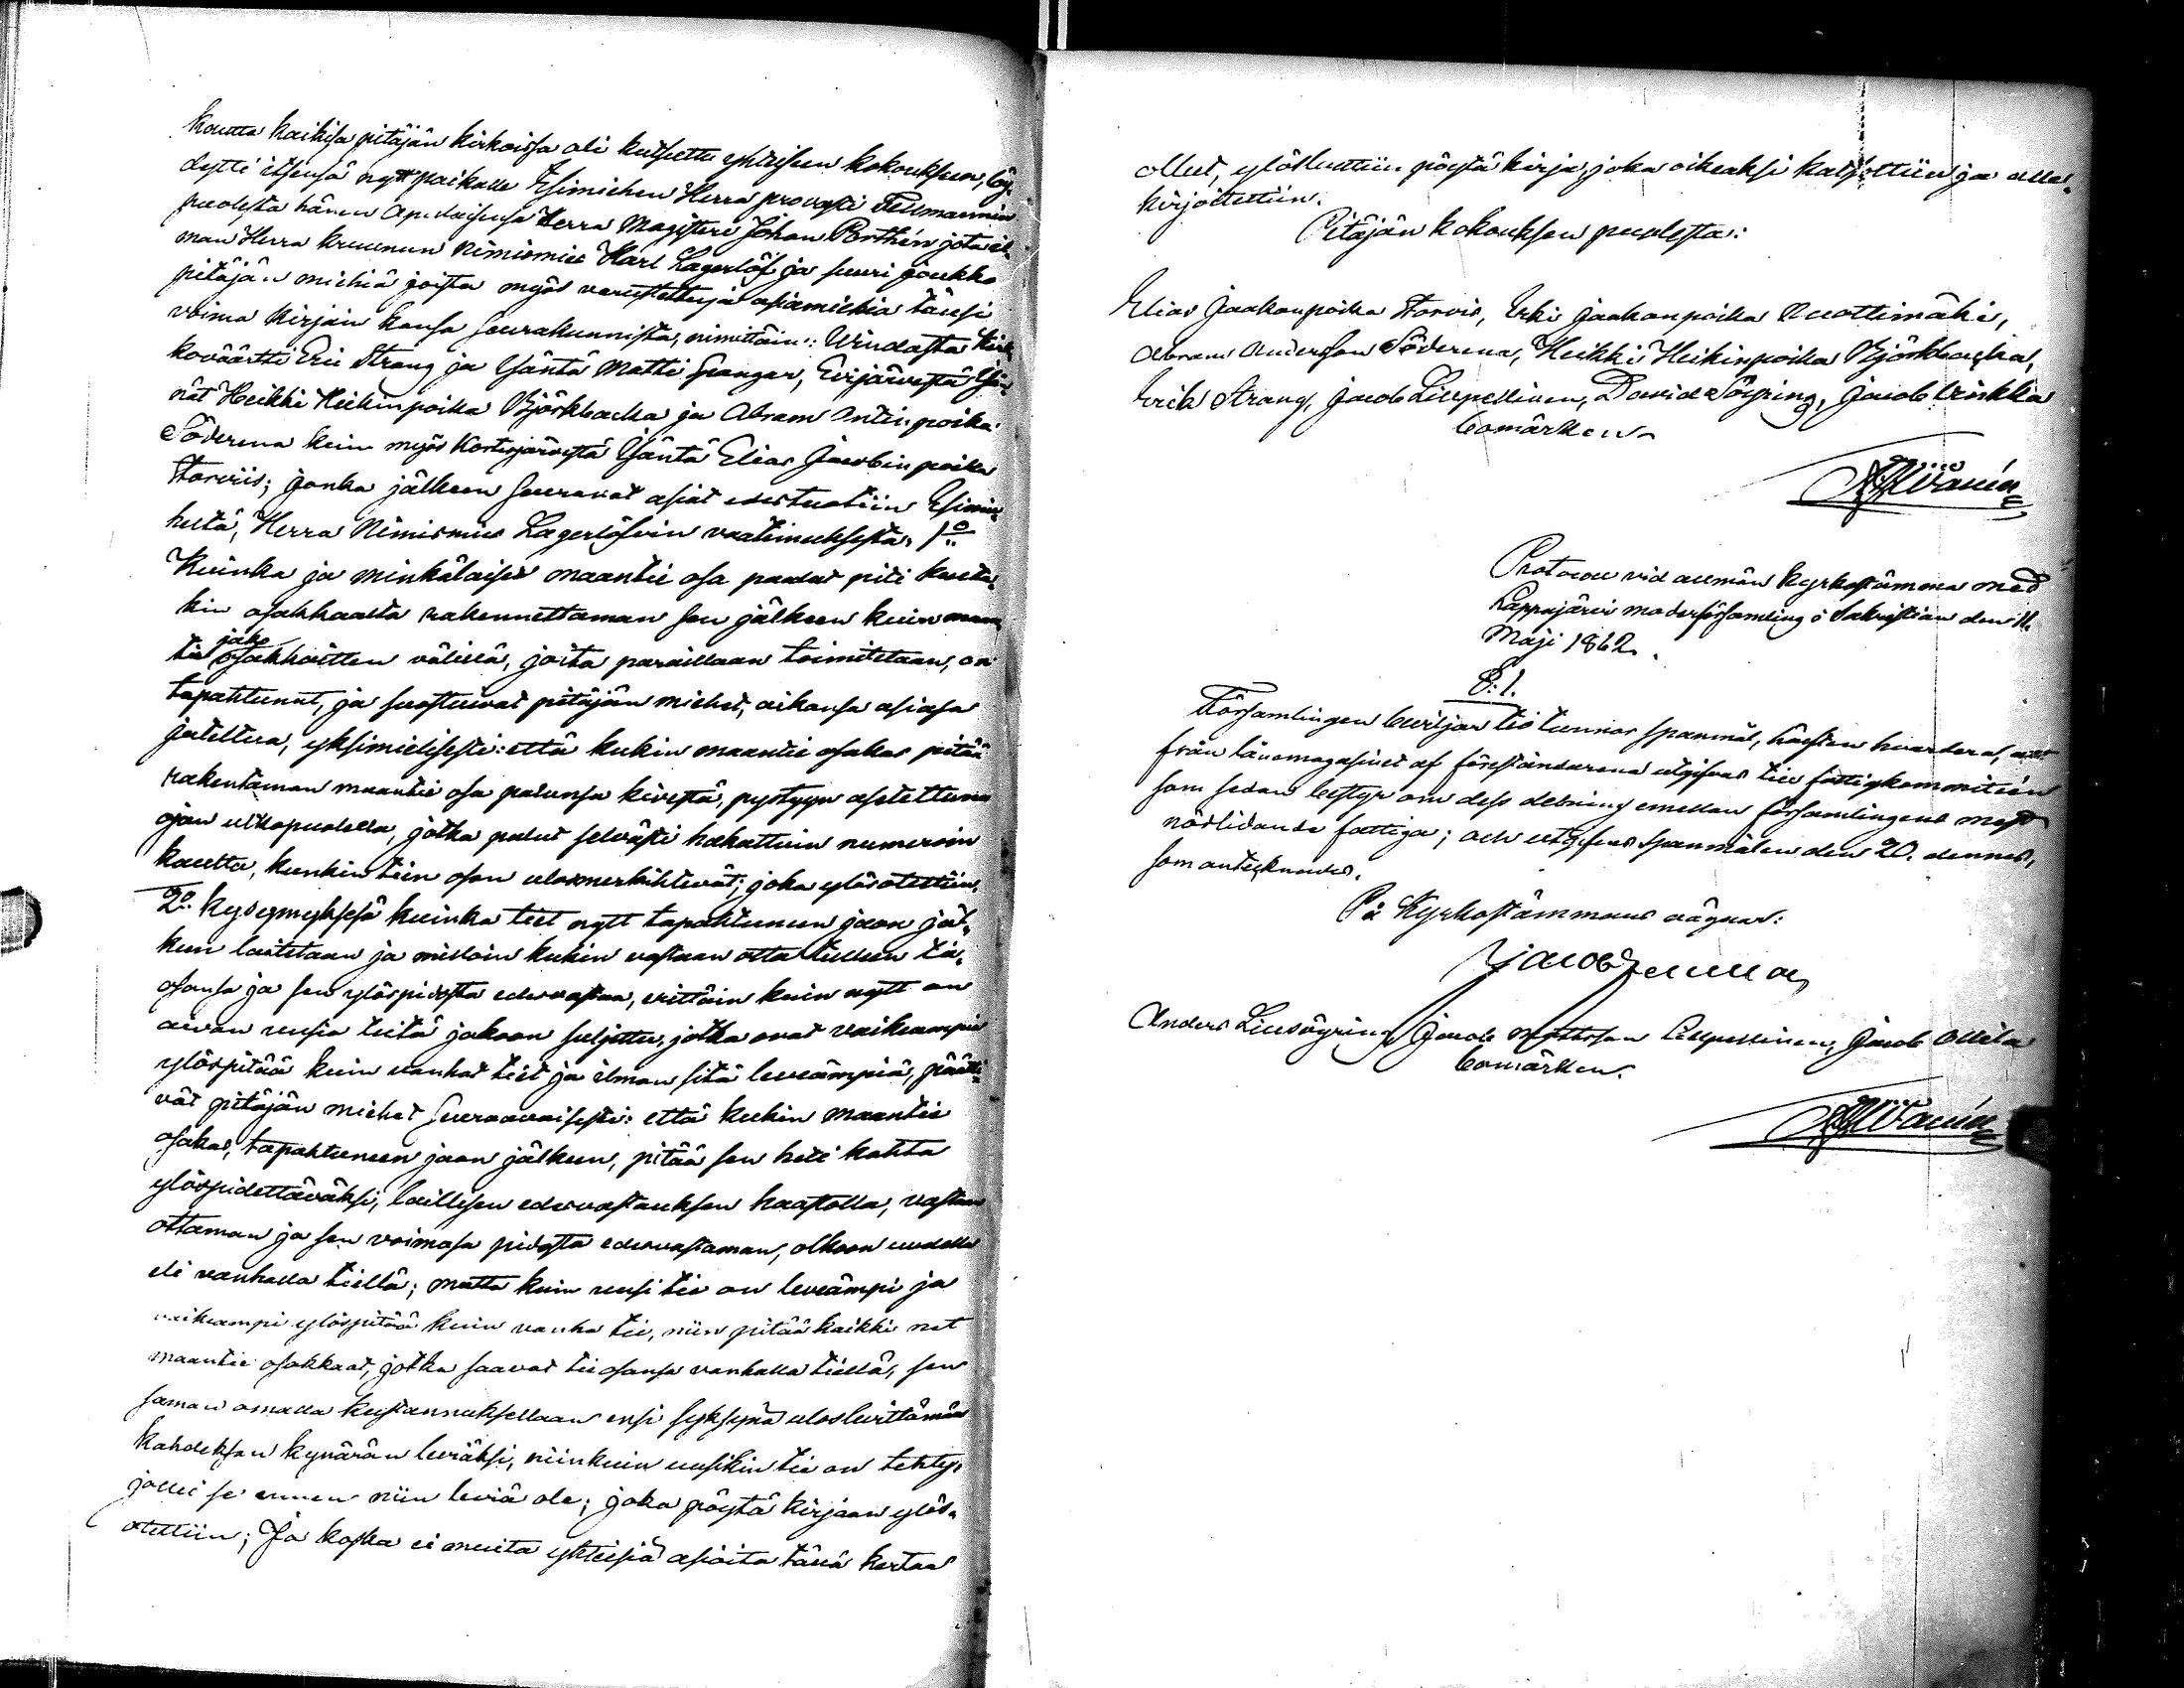 kautta kaikisa pitäjän kirkoissa oli kutsuttu yhteiseen kokoukseen, löy-
dytti itsensä nytt paikalle Esimiehen Herra provasti Fellmannin
puolesta hänen Apulaisensa Herra Magisteri Johan Porthén jota il-
man Herra kruunun Nimismies Karl Lagerlöf ja suuri joukko
pitäjän miehiä joista myös varustettuja asiamiehiä täusi
voima kirjain kansa seurakunnista, nimittäin: Vindasta Kirk-
koväärtti Eric Strang ja Isäntä Matti Granger, Evijärvestä Isän-
nät Heikki Heikinpoika Björkbacka ja Abram Antinpoika
Söderena kuin myös Kortesjärvestä Isäntä Elias Jacobin poika
Storviis; jonka jälkeen seuraavat asiat edestuotiin Esimie-
hettä, Herra Nimismies Lagerlöfvin vaatimuksesta: 1o
Kuinka ja minkälaiset maantie osa paalut piti kunkin
kin osakkaalta rakennettaman sen jälkeen kuin maan-
tie jako osakkaitten välillä, joita paraillaan toimitetaan, on
tapahtunut, ja suostuivat pitäjän miehet, aikansa asiasa
jutteltua, yksimielisesti: että kukin maantie osakas pitää
rakentaman maantie osa paalunsa kivestä, pystyyn asetettuna
ojan ulkopuolella, jotka paalut selvästi hakattuin numeroin
kautta, kunkin tien osan ulosmerkihtevät; joka ylösotettiin.
2o Kysymyksesä kuinka tiet nytt tapahtuneen jaon jäl-
keen laitetaan ja milloin kukin vastaan ottaa tulleen tie-
osansa ja sen ylöspidosta edesvastaa, erittäin kuin nytt on
aivan uusia teitä jakoon suljettu, jotka ovat vaikeampia
ylöspitää kuin vanhat tiet ja ilman sitä leveämpiä, päätti-
vät pitäjän miehet seuraavaisesti: että kukin maantie
osakas, tapahtuneen jaon jälkeen, pitää sen heti kohta
ylöspidettäväksi, laillisen edesvastauksen haastolla, vastaan
ottaman ja sen voimasa pidosta edesvastaman, olkoon uudella
eli vanhalla tiellä; mutta kuin uusi tie on leveämpi ja
vaikeampi ylöspitää kuin vanha tie, niin pitää kaikki net
maantie osakkaat, jotka saavat tieosansa vanhalla tiellä, sen
saman omalla kustannuksellaan ensi syksynä ulosleviттämän
kahdeksan kynärän leviäksi, niinkuin uusikin tie on tehty,
jollei se ennen niin leviä ole; joka pöytä kirjaan ylös-
otettiin; Ja koska ei muita yhteisiä asioita tällä kertaa
ollut, ylösluettiin pöytä kirja, joka oikeaksi katsottiin ja alle-
kirjoitettiin.
Pitäjän kokouksen puolesta:
Elias Jaakonpoika Storvis, Erki Jaakonpoika Nuottimäki,
Abram Andersson Söderena, Heikki Heikinpoika Björkbacka,
Erik Strang, Jacob Lillpellinen, David Söyring, Jacob Vinkkla
bomärken
Protocoll vid allmän kyrkostämma med
Lappajärvi moderförsamling i Sakristian den 11.
Maji 1862.
§: 1.
Församlingen beviljar tio tunnor spanmål, hälften hvardera, att
från lånemagasinet af föreståndarena utgifvas till fattigkommittén
som sedan bestyr om dess delning emellan församlingens mest
nödlidande fattiga; och utgifves spanmålen den 20. dennes,
som antecknades.
På Kyrkostämmans vägnar:
Anders Lillsöyring Jacob Mattsson Lillpellinen, Jacob Ollila
bomärken.